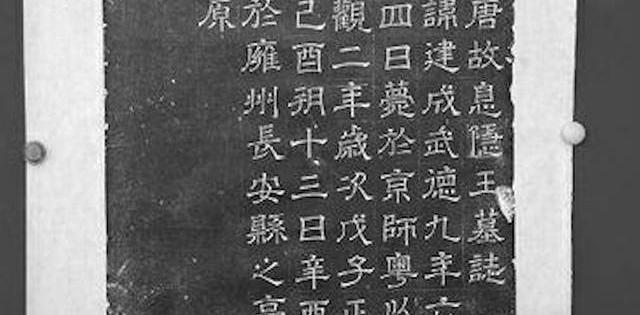 唐故息隱王墓誌
諱建成武德九年六
四日薨於京師粵以
觀二年歲次戊子正
己酉朔十三日辛酉
於雍州長安縣之高
原